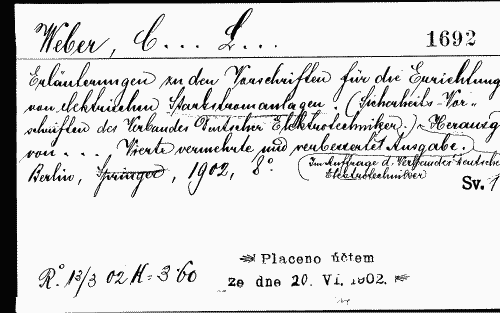 Weber, C... L... 1692
Erläuterungen zu den Vorschriften für die Errichtung
von elektrischen Starkstromanlagen. (Sicherheits-Vor-
schriften des Verbandes Deutscher Elektrotechniker.) - Herausg
von ... Vierte vermehrte und verbesserte Ausgabe.
(Im Auftrage d. Verbandes Deutsche
Elektrotechniker
Berlin, Springer, 1902, 8°.
Sv. 1
Placeno účtem
R° 13/3 02 K=3·60
ze dne 20. VI. 1902.